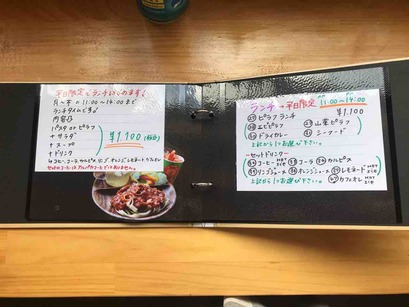 平日限定でランチはじめます!
月〜木 11:00〜14:00まで
ランチタイムです♪
内容は
パスタorピラフ
+サラダ
+スープ
+ドリンク
¥1,100(税込)
ランチ→平日限定 11:00〜14:00
¥1,100
ピラフランチ
エビピラフ
山菜ピラフ
ドライカレー
シーフード
上記から1つお選び下さい。
ーセットドリンクー
コーヒー HOT ICE
コーラ
カルピス
リンゴジュース
オレンジジュース
レモネード HOT ICE
カフェオレ HOT ICE
上記から1つお選び下さい。